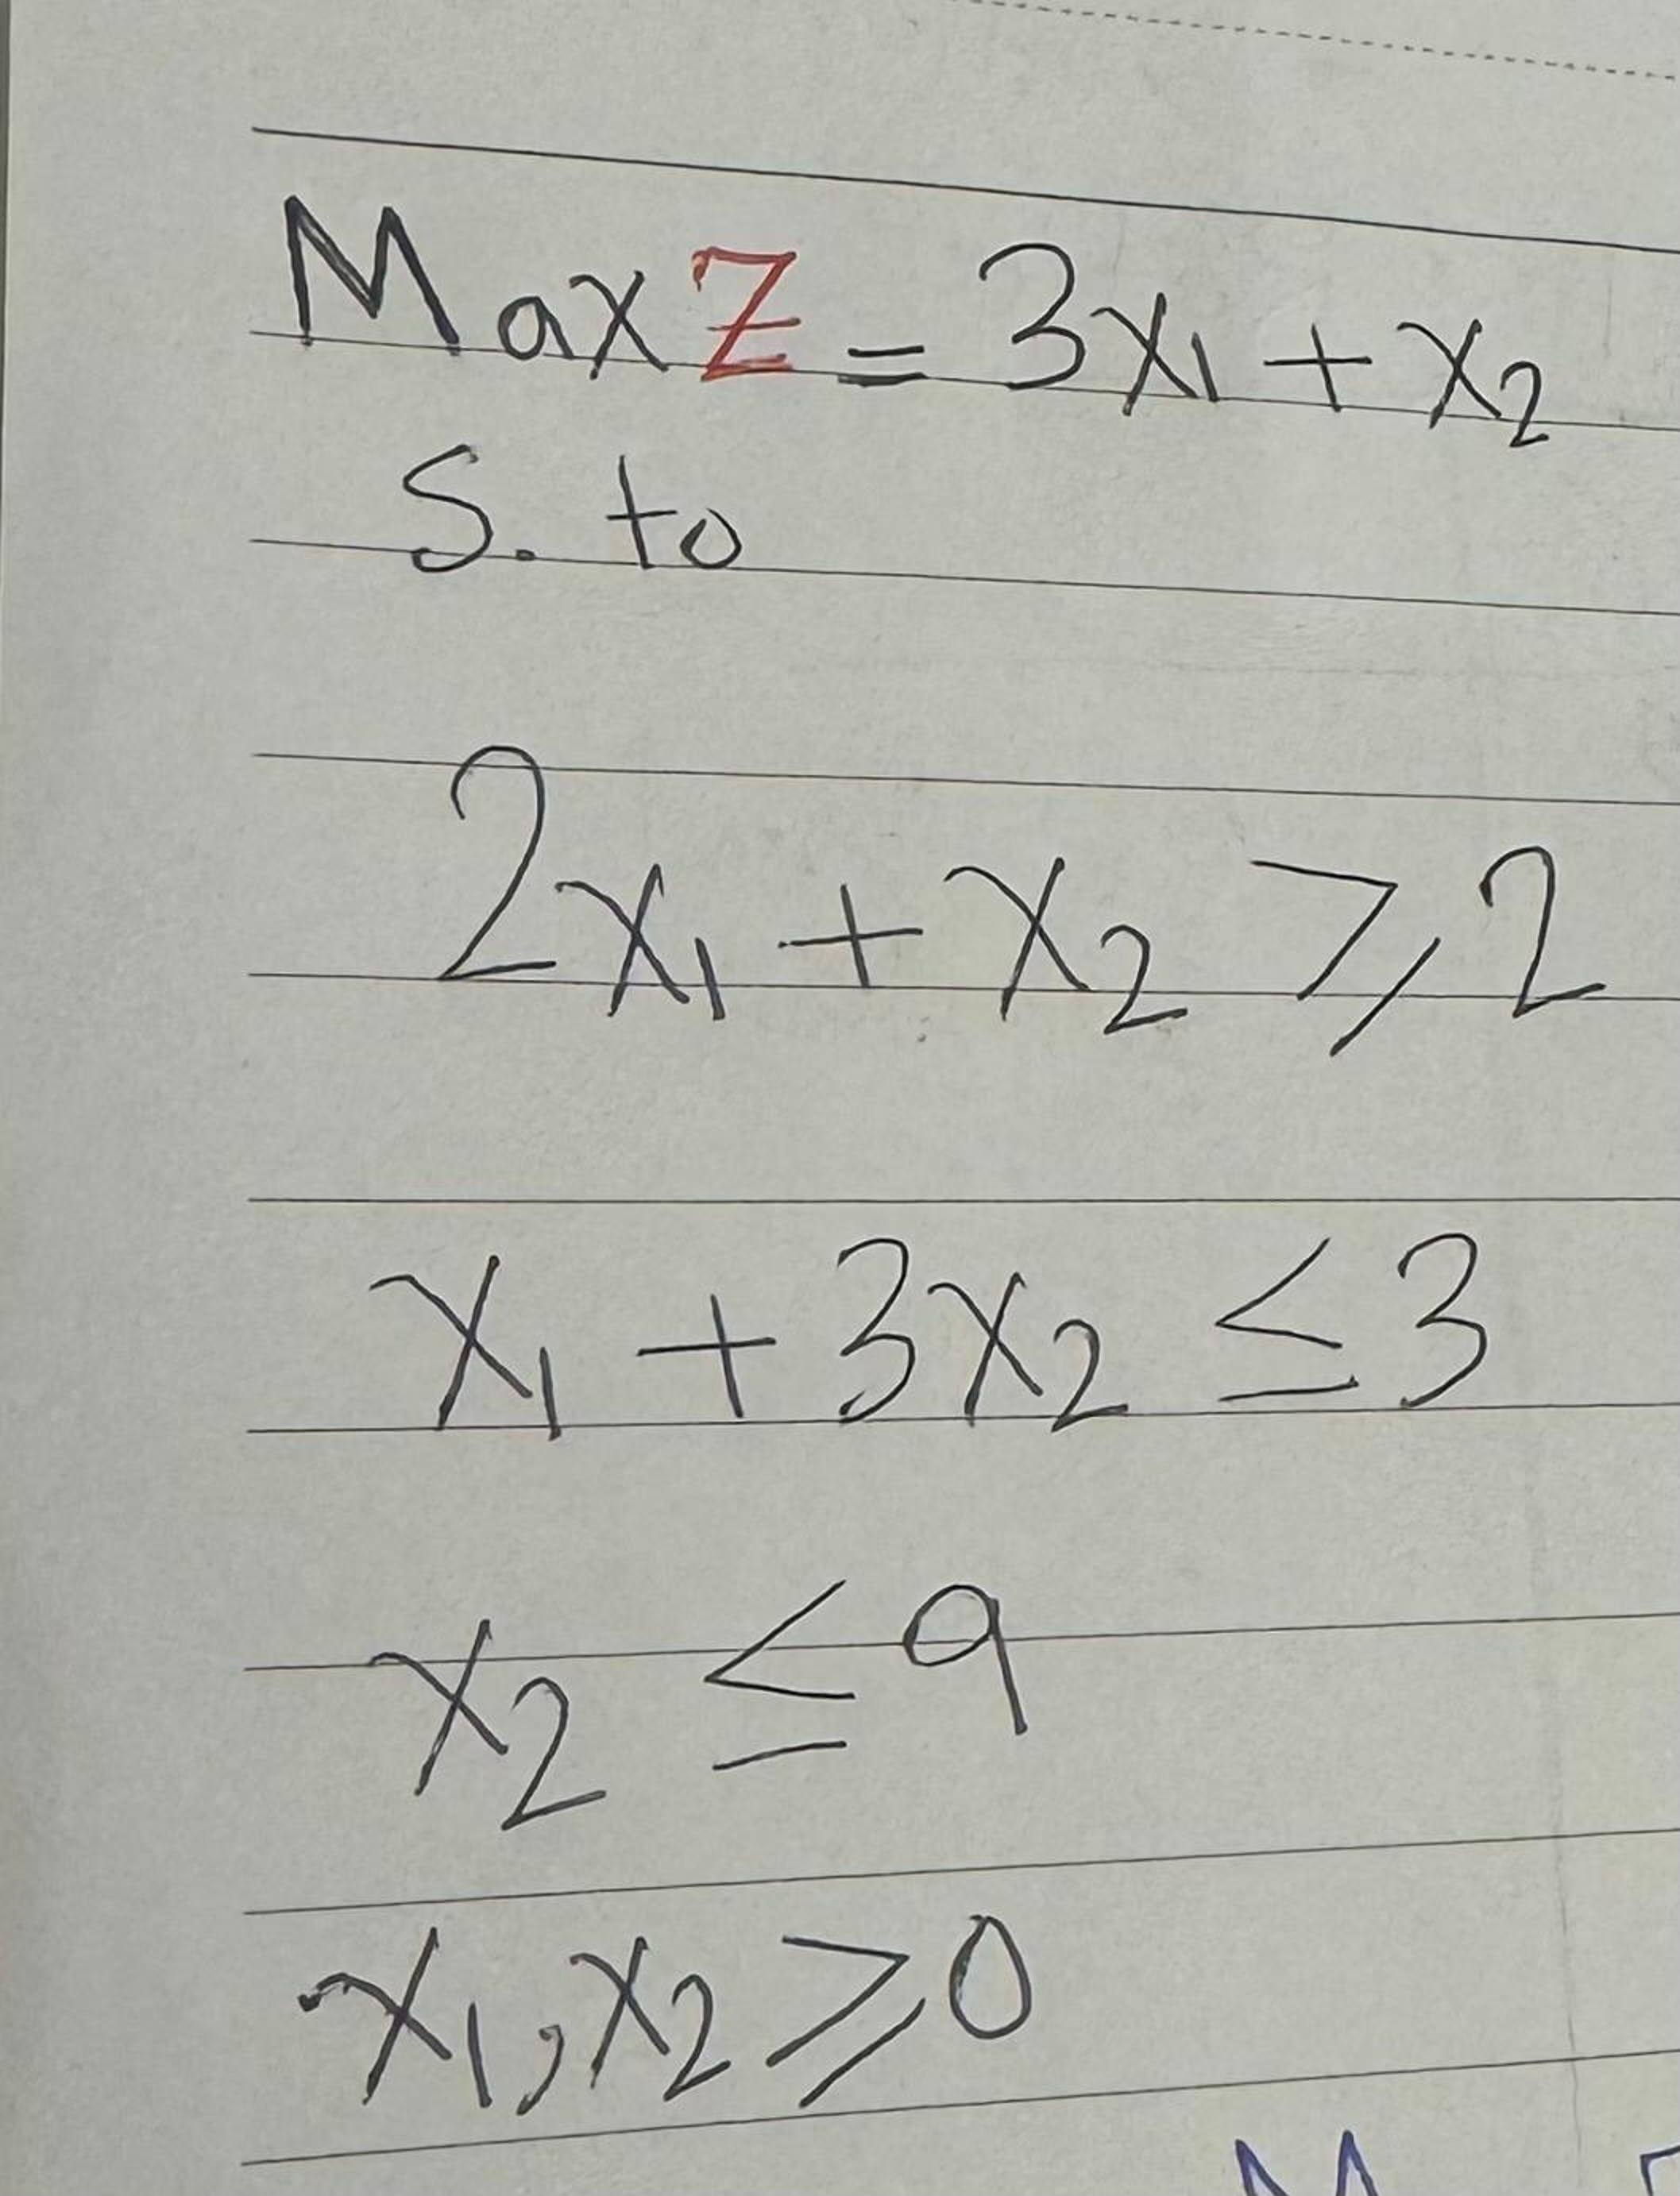 Max Z = 3x₁ + x₂
S. to
2x₁ + x₂ ⩾ 2
x₁ + 3x₂ ≤ 3
x₂ ≤ 9
x₁, x₂ ⩾ 0